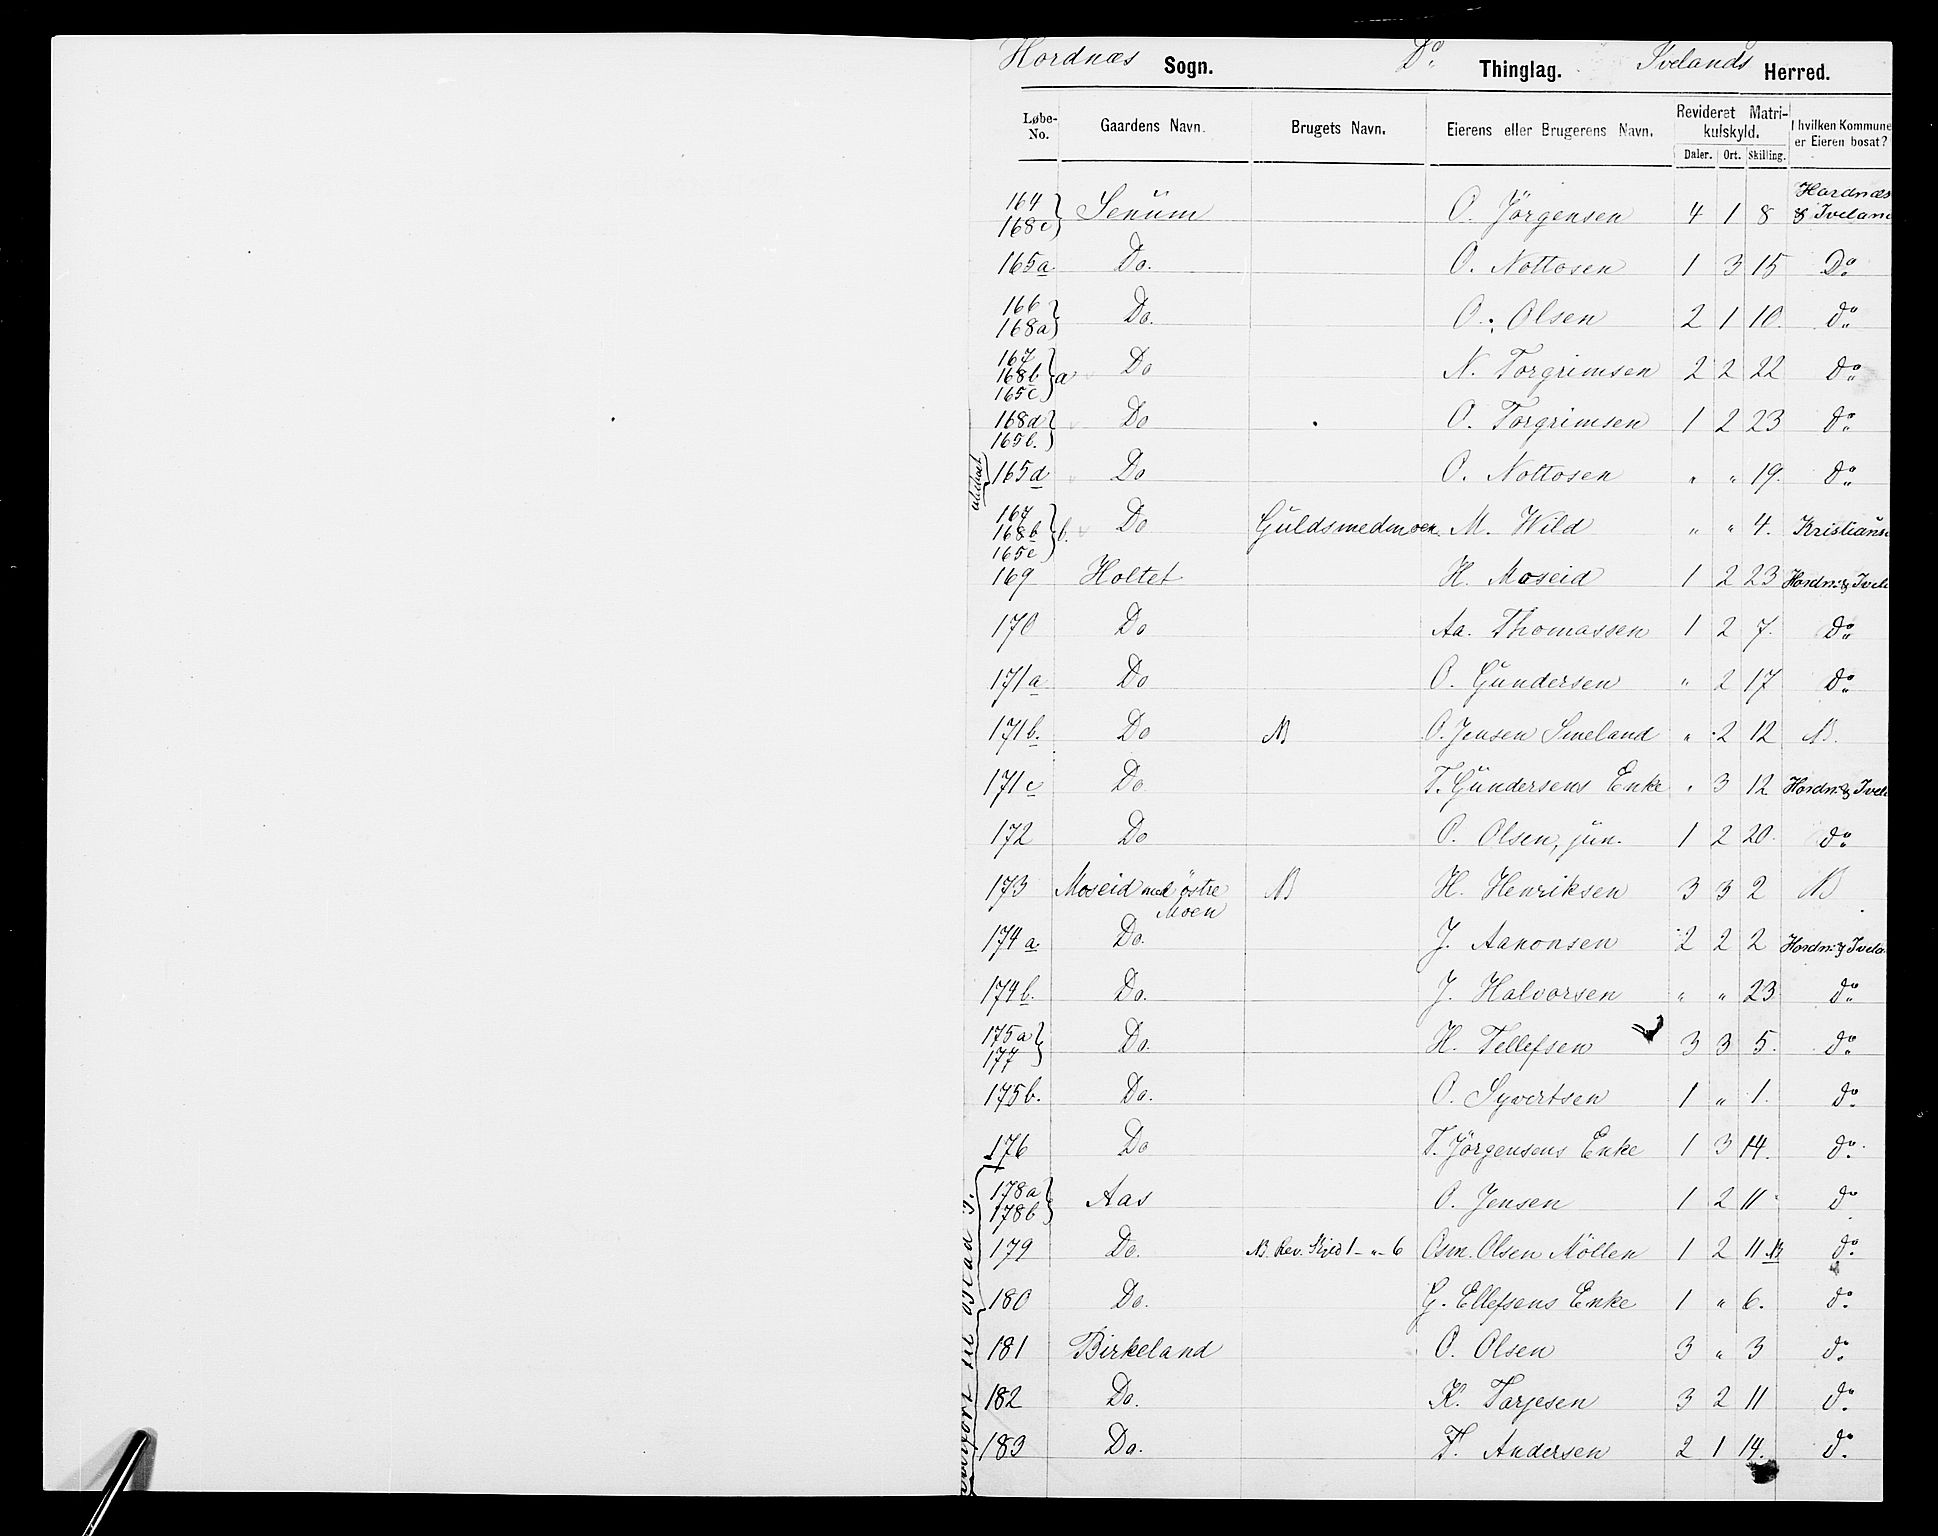 Hordnæs Sogn. Do Thinglag. Ivelands Herred.
Løbe-No. Gaardens Navn. Brugets Navn. Eierens eller Brugerens Navn. Revideret Matrikulskyld. Daler. Ort. Skilling. I hvilken Kommune er Eieren bosat?
164 168c} Senum O. Jörgensen 4 1 8 Hordnæs & Iveland
165a Do. O. Nottosen 1 3 15 Do
166 168a} Do. O. Olsen 2 1 10. do
167 168b 165c} a Do N. Torgrimsen 2 2 22 do
168d 165b.} Do O. Torgrimsen 1 2 23 do
165d Do O. Nottosen " " 19. do
167 168b 165c} b. Do Guldsmedmoen M. Wild " " 4. Kristians
169 Holtet H. Moseid 1 2 23 Hordn: & Ivel
170 Do Aa. Thomassen 1 2 7. do
171a Do O. Gundersen " 2 17 do
171b. Do NB O. Jensen Smeland " 2 12 NB.
171c Do T. Gundersens Enke " 3 12 Hordn: & Ivel
172 Do O. Olsen, jun. 1 2 20. do
173 Moseid med östre Moen NB H. Henriksen 3 3 2 NB
174a. Do. J. Aanonsen 2 2 2 Hordn: & Ivela
174b. Do. J. Halvorsen " " 23 do
175a 177} Do. H. Tellefsen 3 3 5. do
175b. Do. O. Syvertsen 1 " 1. do
176 Do T. Jörgensens Enke 1 3 14. do
178a 178b} Aas O. Jensen 1 2 11 do
179 Do. NB. Rev. Skyld 1 - " - 6 Osm. Olsen Möllen 1 2 11 NB do
180 Do. G. Ellefsens Enke 1 " 6. do
181 Birkeland O. Olsen 3 " 3 do
182 Do. K. Tarjesen 3 2 11 do
183 Do. T. Andersen 2 1 14. do